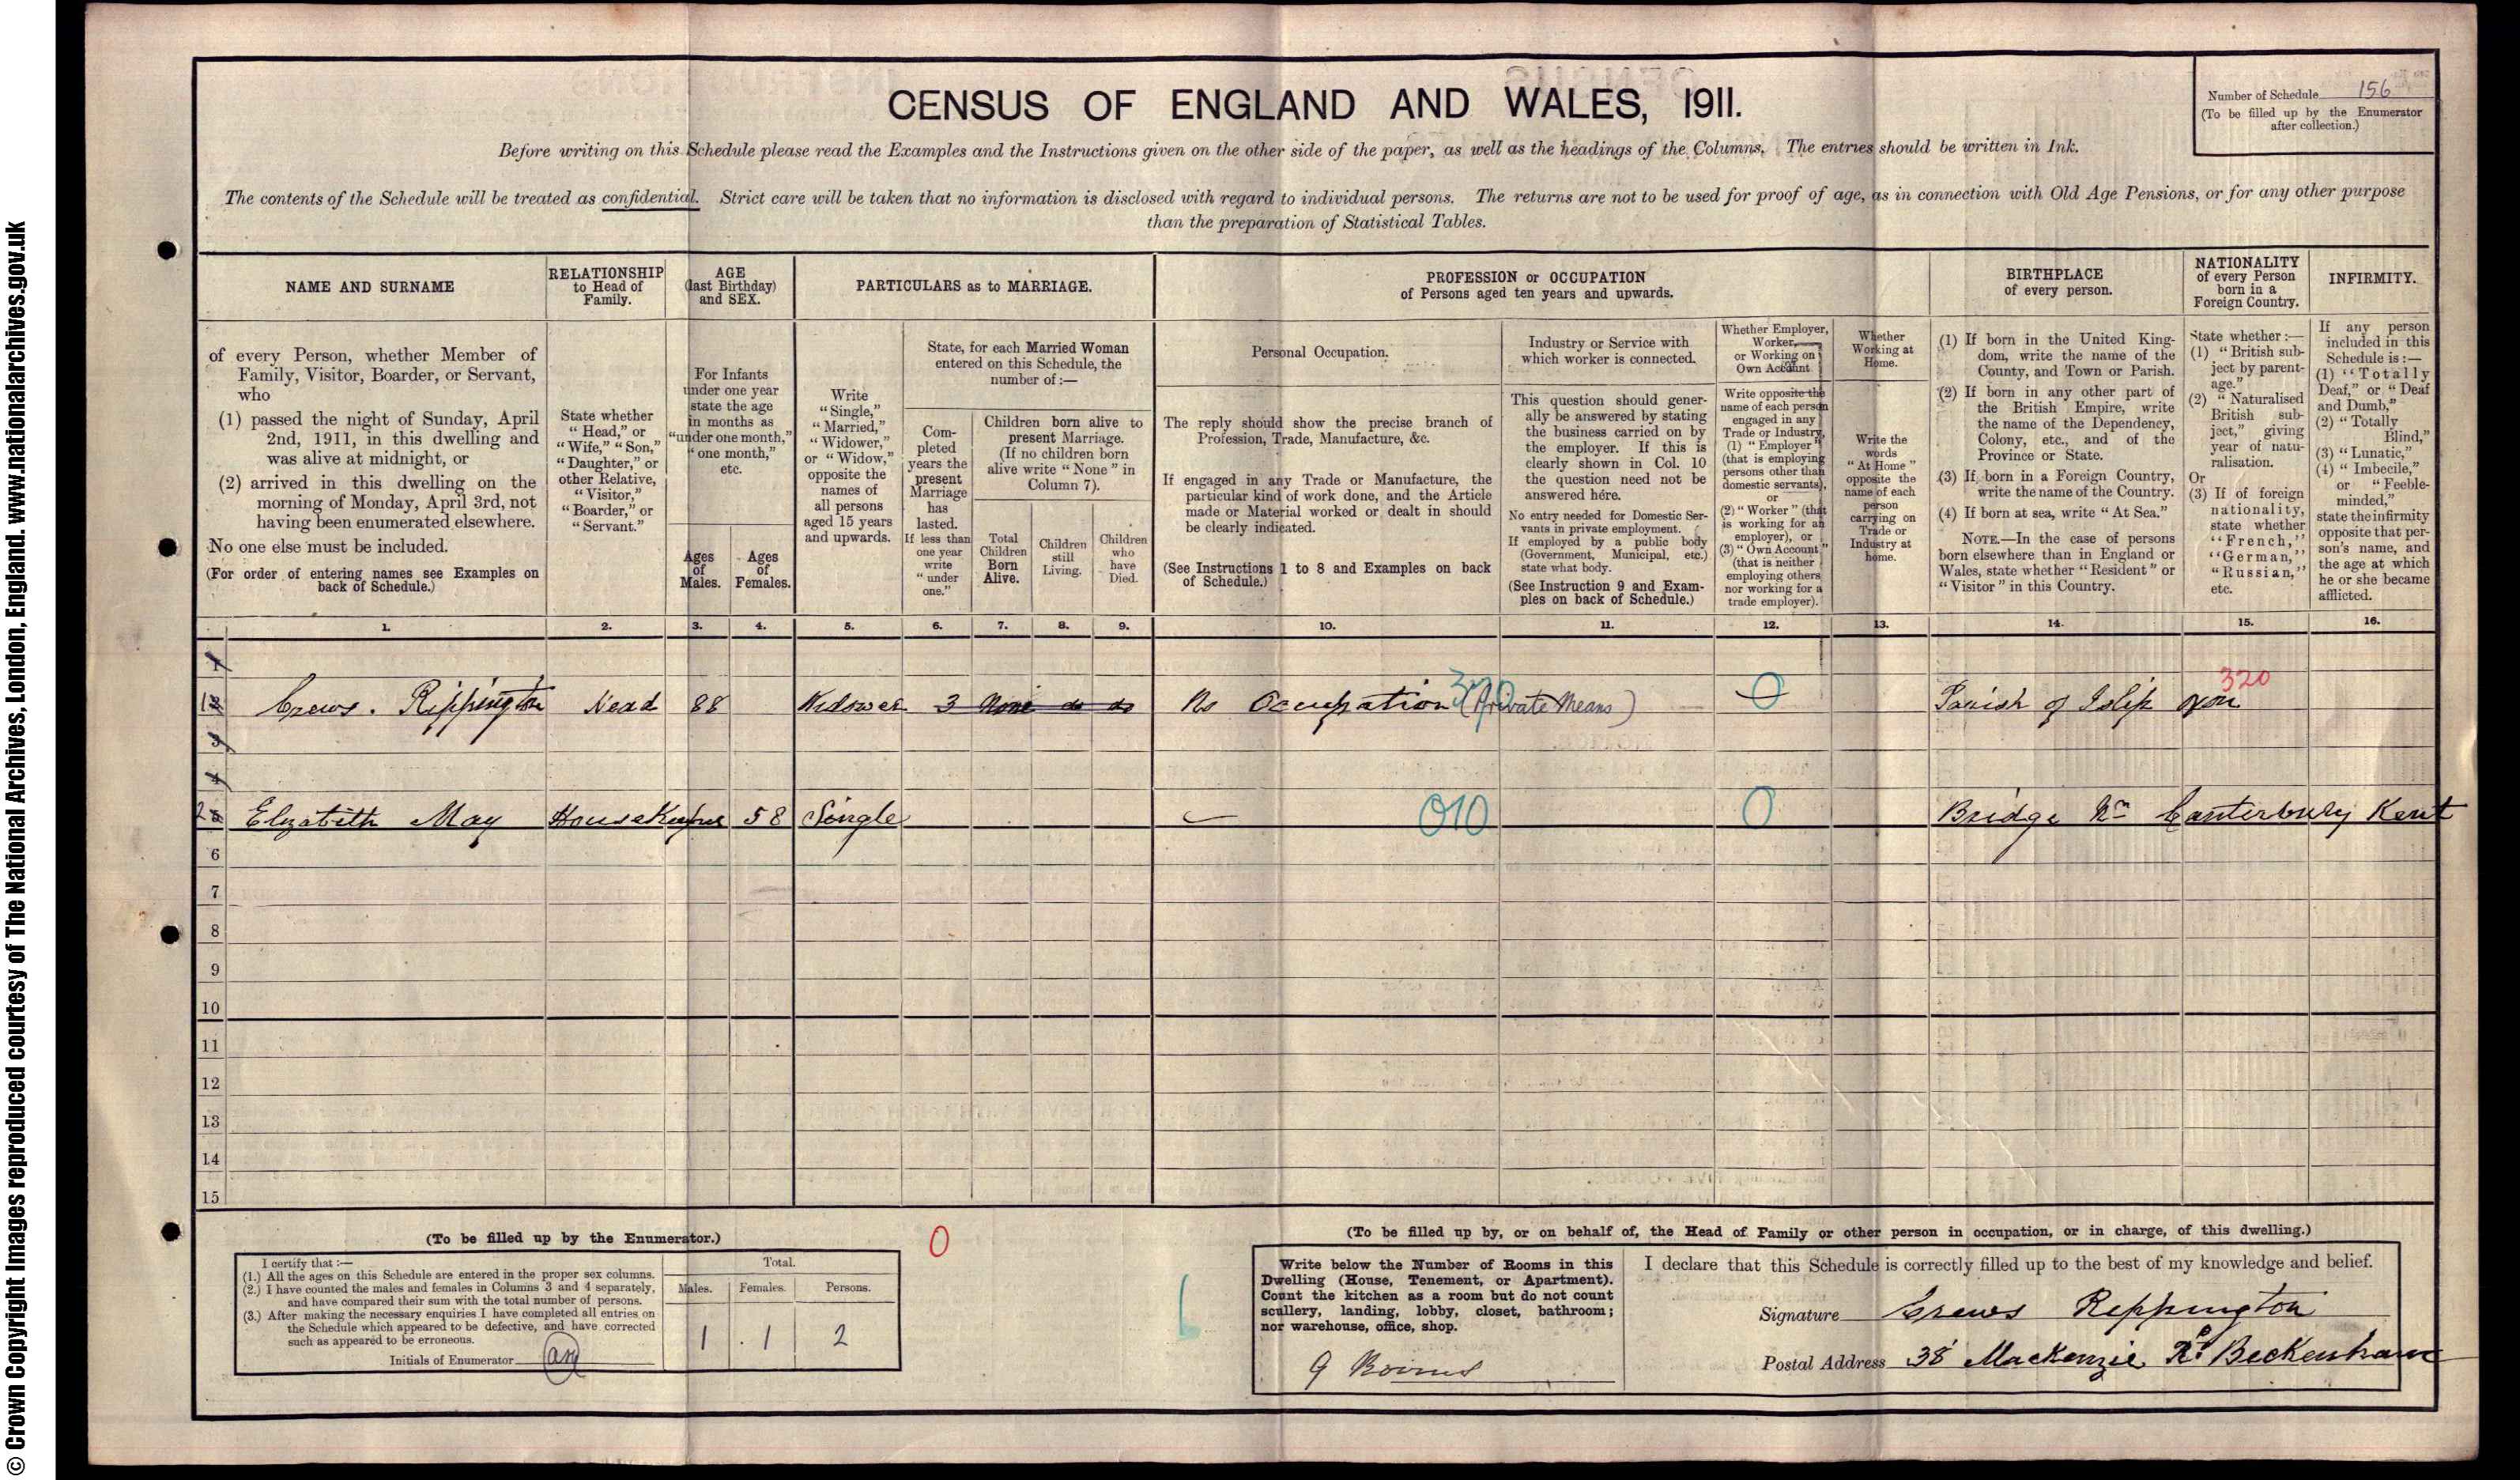 © Crown Copyright Images reproduced courtesy of The National Archives, London, England. www.nationalarchives.gov.uk
CENSUS OF ENGLAND AND WALES, 1911.
Number of Schedule 156
(To be filled up by the Enumerator
after collection.)
Before writing on this Schedule please read the Examples and the Instructions given on the other side of the paper, as well as the headings of the Columns. The entries should be written in Ink.
The contents of the Schedule will be treated as confidential. Strict care will be taken that no information is disclosed with regard to individual persons. The returns are not to be used for proof of age, as in connection with Old Age Pensions, or for any other purpose
than the preparation of Statistical Tables.
NAME AND SURNAME
of every Person, whether Member of
Family, Visitor, Boarder, or Servant,
who
(1) passed the night of Sunday, April
2nd, 1911, in this dwelling and
was alive at midnight, or
(2) arrived in this dwelling on the
morning of Monday, April 3rd, not
having been enumerated elsewhere.
No one else must be included.
(For order of entering names see Examples on
back of Schedule.)
RELATIONSHIP
to Head of
Family.
State whether
"Head," or
"Wife," "Son,"
"Daughter," or
other Relative,
"Visitor,"
"Boarder," or
"Servant."
AGE
(last Birthday)
and SEX.
For Infants
under one year
state the age
in months as
"under one month,"
"one month,"
etc.
Ages
of
Males.
Ages
of
Females.
PARTICULARS as to MARRIAGE.
Write
"Single,"
"Married,"
"Widower,"
or "Widow,"
opposite the
names of
all persons
aged 15 years
and upwards.
State, for each Married Woman
entered on this Schedule, the
number of:—
Com-
pleted
years the
present
Marriage
has
lasted.
If less than
one year
write
"under
one."
Children born alive to
present Marriage.
(If no children born
alive write "None" in
Column 7).
Total
Children
Born
Alive.
Children
still
Living.
Children
who
have
Died.
PROFESSION or OCCUPATION
of Persons aged ten years and upwards.
Personal Occupation.
The reply should show the precise branch of
Profession, Trade, Manufacture, &c.
If engaged in any Trade or Manufacture, the
particular kind of work done, and the Article
made or Material worked or dealt in should
be clearly indicated.
(See Instructions 1 to 8 and Examples on back
of Schedule.)
Industry or Service with
which worker is connected.
This question should gener-
ally be answered by stating
the business carried on by
the employer. If this is
clearly shown in Col. 10
the question need not be
answered here.
No entry needed for Domestic Ser-
vants in private employment.
If employed by a public body
(Government, Municipal, etc.)
state what body.
(See Instruction 9 and Exam-
ples on back of Schedule.)
Whether Employer,
Worker,
or Working on
Own Account.
Write opposite the
name of each person
engaged in any
Trade or Industry,
(1) "Employer"
(that is employing
persons other than
domestic servants),
or
(2) "Worker" (that
is working for an
employer), or
(3) "Own Account"
(that is neither
employing others
nor working for a
trade employer).
Whether
Working at
Home.
Write the
words
"At Home"
opposite the
name of each
person
carrying on
Trade or
Industry at
home.
BIRTHPLACE
of every person.
(1) If born in the United King-
dom, write the name of the
County, and Town or Parish.
(2) If born in any other part of
the British Empire, write
the name of the Dependency,
Colony, etc., and of the
Province or State.
(3) If born in a Foreign Country,
write the name of the Country.
(4) If born at sea, write "At Sea."
NOTE.—In the case of persons
born elsewhere than in England or
Wales, state whether "Resident" or
"Visitor" in this Country.
NATIONALITY
of every Person
born in a
Foreign Country.
State whether:—
(1) "British sub-
ject by parent-
age."
(2) "Naturalised
British sub-
ject," giving
year of natu-
ralisation.
Or
(3) If of foreign
nationality,
state whether
"French,"
"German,"
"Russian,"
etc.
INFIRMITY.
If any person
included in this
Schedule is:—
(1) "Totally
Deaf," or "Deaf
and Dumb,"
(2) "Totally
Blind,"
(3) "Lunatic,"
(4) "Imbecile,"
or "Feeble-
minded,"
state the infirmity
opposite that per-
son's name, and
the age at which
he or she became
afflicted.
1. 2. 3. 4. 5. 6. 7. 8. 9. 10. 11. 12. 13. 14. 15. 16.
1
1 2 Crews. Rippington Head 88 Widower 3 None do do No Occupation (Private Means) 0 Parish of Islip Oxon 320
3
4
2 5 Elizabeth May HouseKeeper 58 Single — 010 0 Bridge Nr Canterbury Kent
6
7
8
9
10
11
12
13
14
15
(To be filled up by the Enumerator.)
I certify that:—
(1.) All the ages on this Schedule are entered in the proper sex columns.
(2.) I have counted the males and females in Columns 3 and 4 separately,
and have compared their sum with the total number of persons.
(3.) After making the necessary enquiries I have completed all entries on
the Schedule which appeared to be defective, and have corrected
such as appeared to be erroneous.
Initials of Enumerator
Total.
Males. Females. Persons.
1 1 2
0
(To be filled up by, or on behalf of, the Head of Family or other person in occupation, or in charge, of this dwelling.)
Write below the Number of Rooms in this
Dwelling (House, Tenement, or Apartment).
Count the kitchen as a room but do not count
scullery, landing, lobby, closet, bathroom;
nor warehouse, office, shop.
9 Rooms
I declare that this Schedule is correctly filled up to the best of my knowledge and belief.
Signature Crews Rippington
Postal Address 38 MacKenzie Rd Beckenham